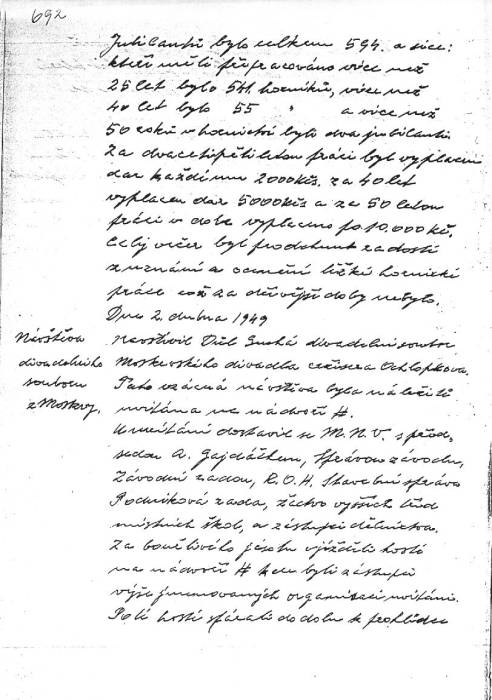 692
Jubilantů bylo celkem 594. a sice:
kteří měli přepracováno více než
25 let bylo 541 horníků, více než
40 let bylo 55 " a více než
50 roků v hornictví bylo dva jubilanti
Za dvacetipětiletou práci byl vyplacen
dar každému 2000 Kčs. za 40 let
vyplacen dar 5000 Kčs a za 50 letou
práci v dole vyplaceno po 10.000 Kč.
Celý večer byl prodchnut radostí
z uznání a ocenění těžké hornické
práce což za dřívější doby nebylo.
Dne 2. dubna 1949
Návštěva
divadelního
souboru
z Moskvy.
navštívil Důl Suchá divadelní soubor
Moskevského divadla režiséra Ochlopkova.
Tato vzácná návštěva byla náležitě
uvítána na nádvoří #.
K uvítání dostavil se M.N.V. s před-
sedou A. Gajdáčkem, Správou závodu,
Závodní radou, R.O.H. Stavební správa
Podniková rada, žactvo vyšších tříd
místních škol, a zástupci dělnictva.
Za bouřlivého jásotu vjížděli hosté
na nádvoří # kde byli zástupci
výše jmenovaných organisací uvítáni.
Poté hosté sfárali do dolu k prohlídce